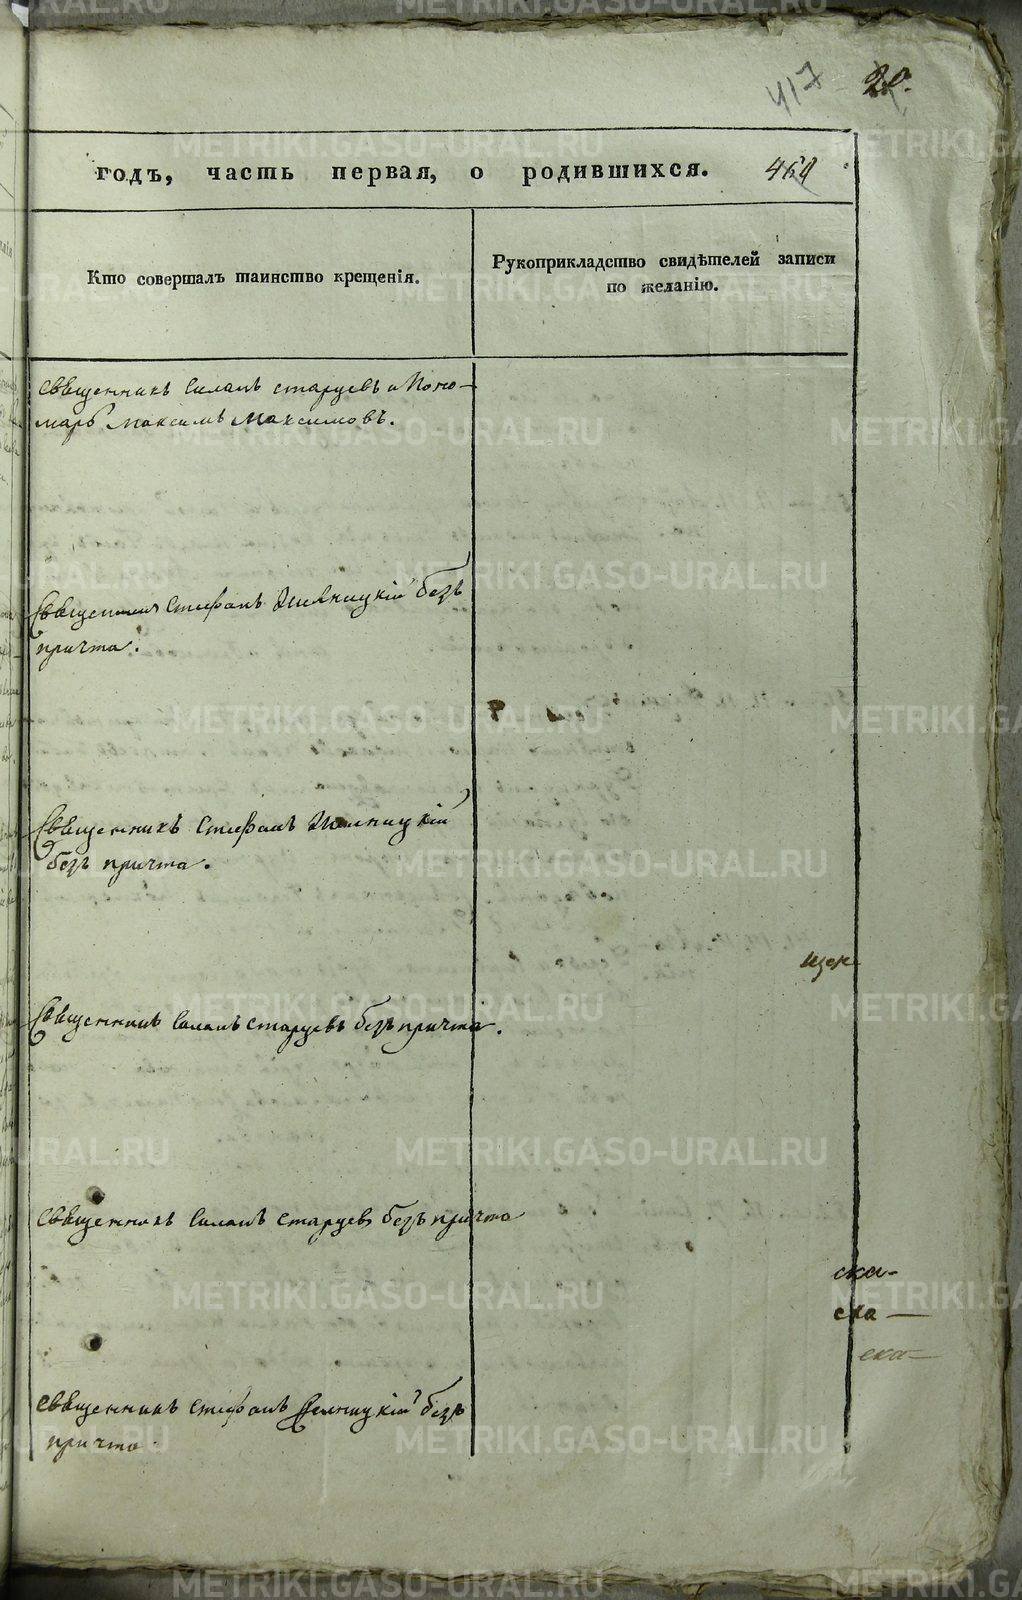 417
годъ, часть первая, о родившихся. 464
Кто совершалъ таинство крещенія.
Рукоприкладство свидѣтелей записи
по желанію.
Священникъ Силанъ Старцевъ и Поно-
марь Максимъ Максимовъ.
Священникъ Стефанъ без
причта.
Священникъ Стефанъ
безъ причта.
Священникъ Силанъ Старцевъ безъ причта.
Священникъ Силанъ Старцевъ безъ причта
ска-
ска
ска
Священникъ Стефанъ безъ
причта
METRIKI.GASO-URAL.RU